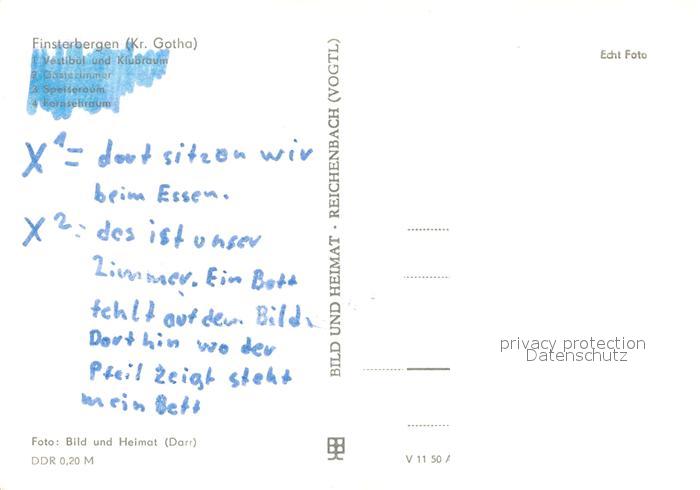 Finsterbergen (Kr. Gotha)
1 Vestibül und Klubraum
2 Gästezimmer
3 Speiseraum
4 Fernsehraum
X 1 = dort sitzen wir
beim Essen.
X 2 = des ist unser
Zimmer. Ein Bett
fehlt auf dem Bild.
Dorthin wo der
Pfeil zeigt steht
mein Bett
Foto: Bild und Heimat (Darr)
DDR 0,20 M
BILD UND HEIMAT · REICHENBACH (VOGTL)
Echt Foto
privacy protection
Datenschutz
V 11 50 A